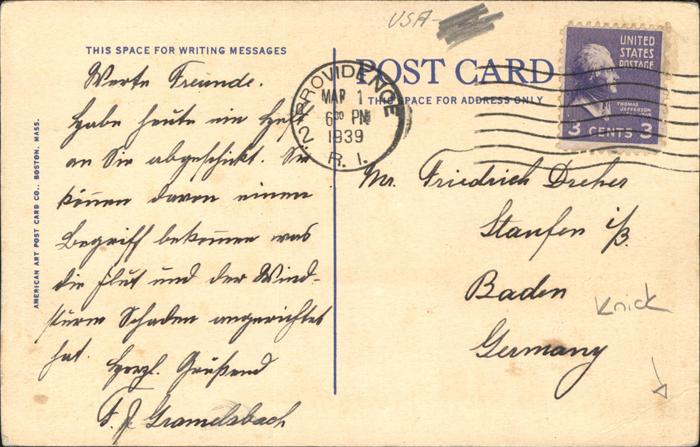 USA
THIS SPACE FOR WRITING MESSAGES
POST CARD
THIS SPACE FOR ADDRESS ONLY
UNITED
STATES
POSTAGE
THOMAS
JEFFERSON
3 CENTS 3
PROVIDENCE 2.
MAR 1
6 00 PM
1939
R. I.
AMERICAN ART POST CARD CO., BOSTON, MASS.
Werte Freunde.
Habe heute ein Heft
an Sie abgeschickt. Sie
können davon einen
Begriff bekommen was
die Flut und der Wind-
sturm Schaden angerichtet
hat. Herzl. Grüßend
Gramelsbach
Mr. Friedrich Dreher
Staufen i/B.
Baden
Germany
Knick